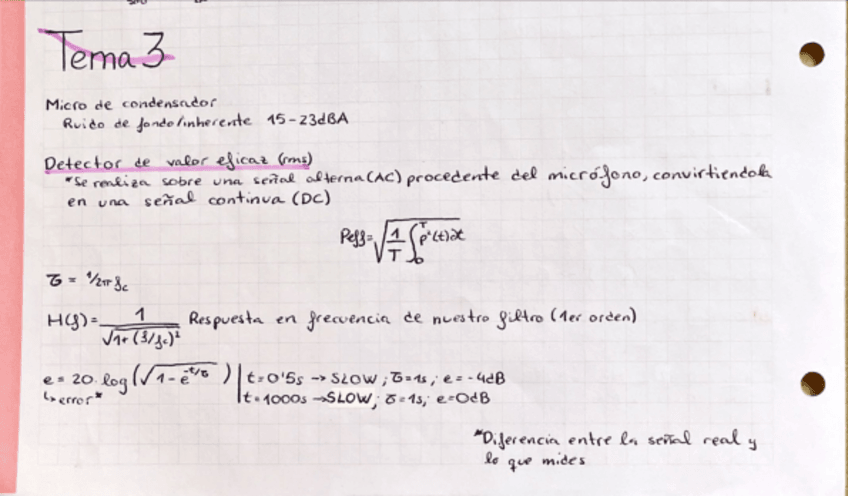 Tema 3
Micro de condensador
Ruido de fondo/inherente 15-23dBA
Detector de valor eficaz (rms)
*Se realiza sobre una señal alterna (AC) procedente del micrófono, convirtiendola
en una señal continua (DC)
Peff = √(1/T ∫₀ᵀ p²(t)dt)
τ = 1/2πfc
H(f) = 1/√(1+(f/fc)²) Respuesta en frecuencia de nuestro filtro (1er orden)
e = 20·log(√(1-e^(-t/τ))) | t=0'5s → SLOW; τ=1s; e=-4dB
↳error* | t=1000s → SLOW; τ=1s; e=0dB
*Diferencia entre la señal real y
lo que mides